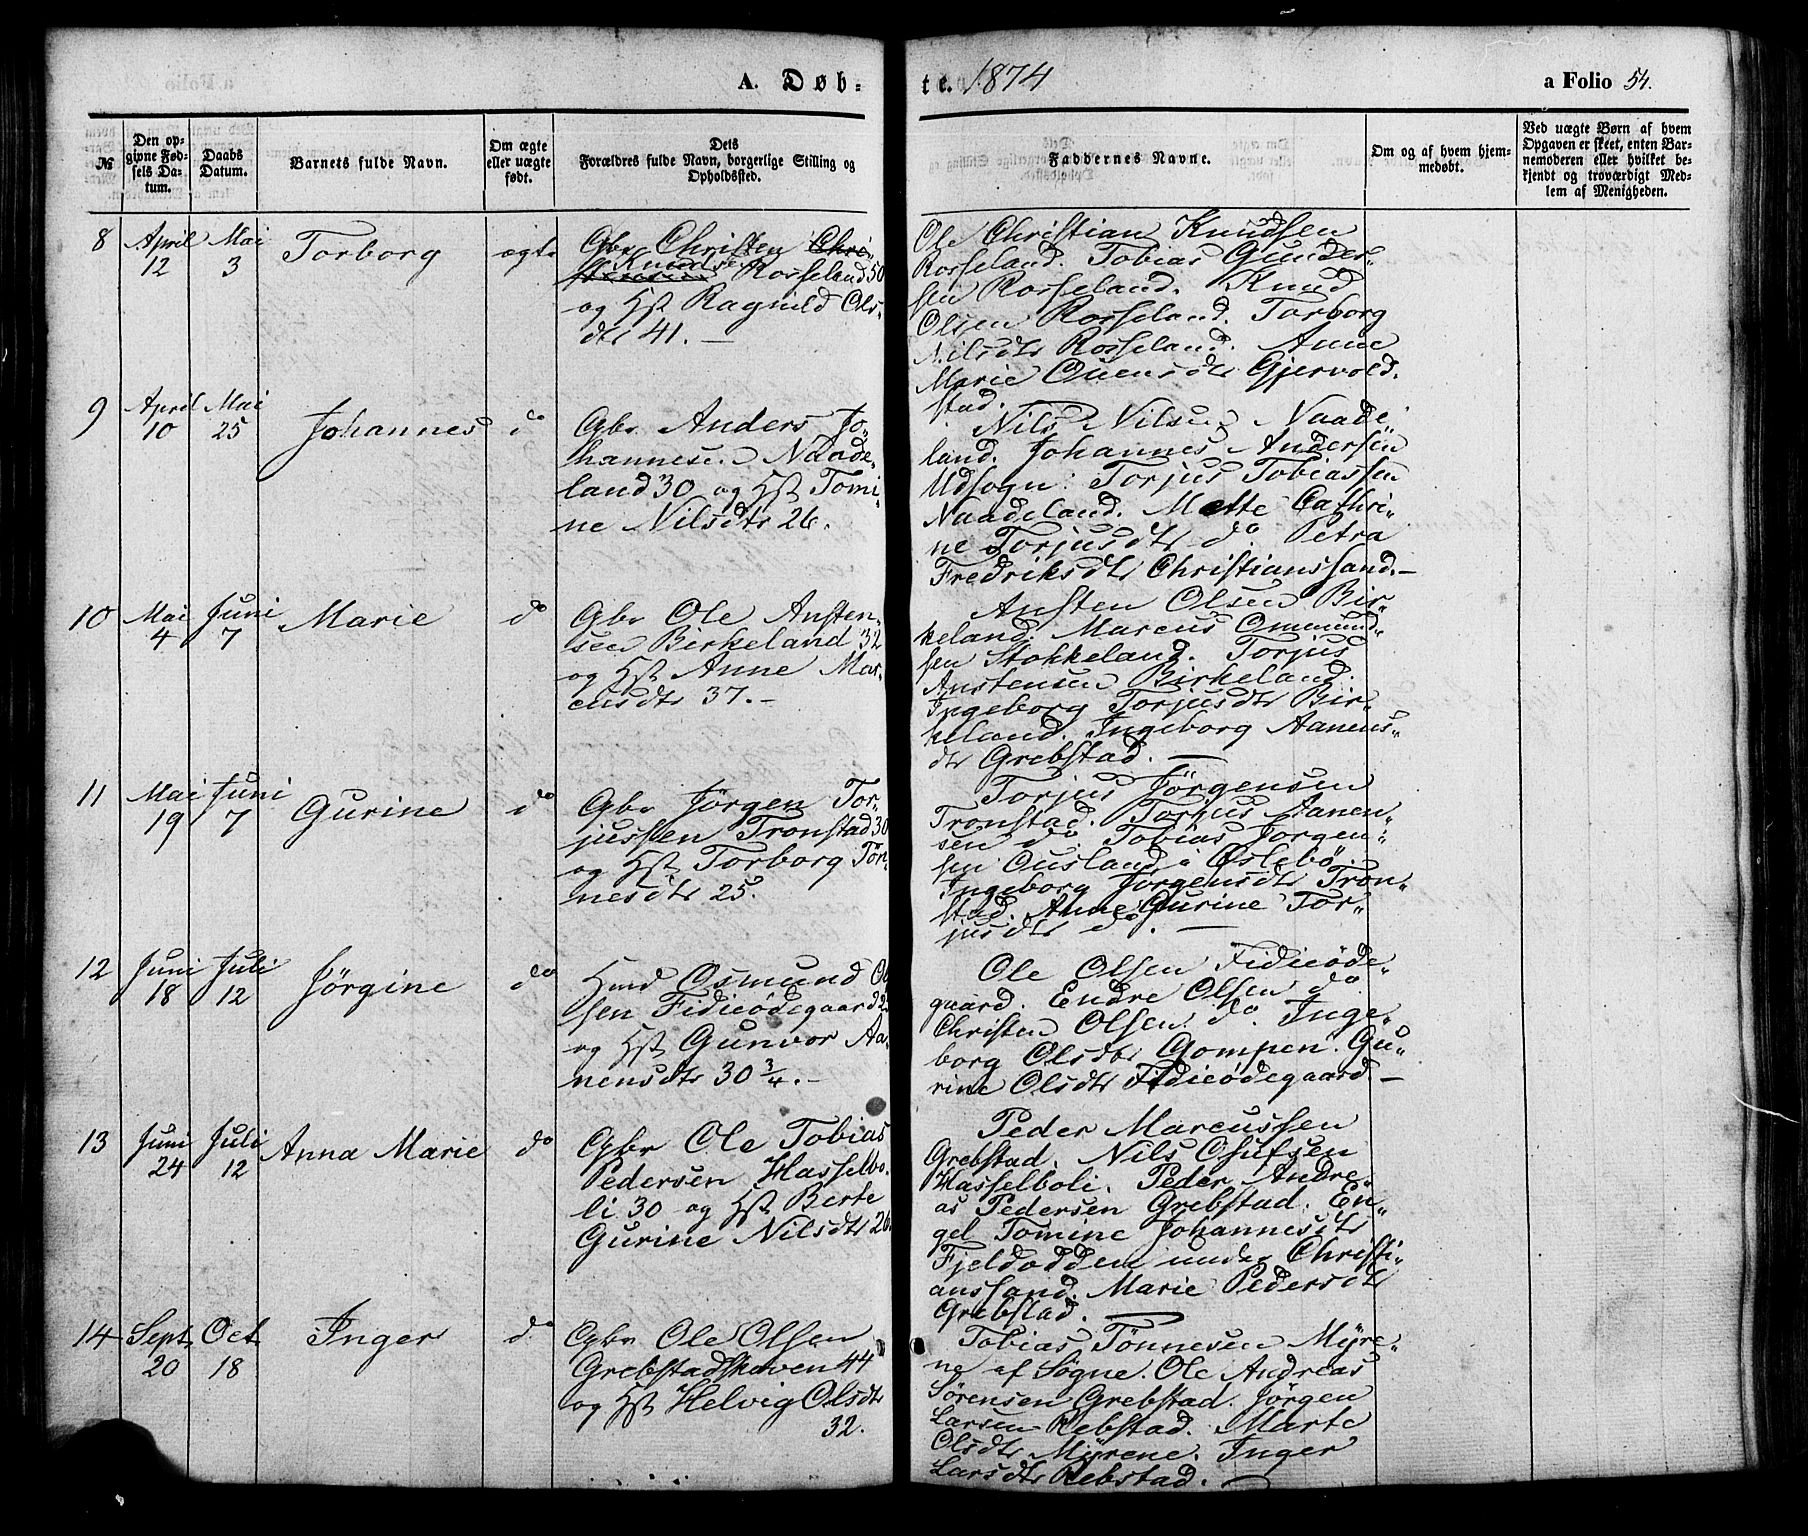 A. Døb-
te. 1874
a Folio 54.
№
Den op-
givne Fød-
sels Da-
tum.
Daabs
Datum.
Barnets fulde Navn.
Om ægte
eller uægte
født.
Dets
Forældres fulde Navn, borgerlige Stilling og
Opholdssted.
Faddernes Navne.
Om og af hvem hjem-
medøbt.
Ved uægte Børn af hvem
Opgaven er skeet, enten Bar-
nemoderen eller hvilket be-
kjendt og troværdigt Med-
lem af Menigheden.
8
April
12
Mai
3
Torborg
ægte
Gbr Christen Chri-
Knudsen Rosseland 50
og Hst Ragnild Ols-
dtr 41. —
Ole Christian Knudsen
Rosseland. Tobias Gunder-
sen Rosseland. Knud
Olsen Rosseland. Torborg
Nilsdtr Rosseland. Anne
Marie Ouensdtr Gjervold-
stad.
9
April
10
Mai
25
Johannes
do
Gbr Anders Jo-
hannesen Naade-
land 30 og Hst Tomi-
ne Nilsdtr 26.
Nils Nilsen Naade-
land. Johannes Andersen
Udsogn. Torjus Tobiassen
Naadeland. Mette Cathri-
ne Torjusdtr do. Petra
Fredriksdtr Christianssand. —
10
Mai
4
Juni
7
Marie
do
Gbr Ole Ansten-
sen Birkeland 32
og Hst Anne Mar-
cusdtr 37. —
Ansten Olsen Bir-
keland. Marcus Ommund-
sen Stokkeland. Torjus
Anstensen Birkeland.
Ingeborg Torjusdtr Bir-
keland. Ingeborg Aanens-
dtr Grebstad. —
11
Mai
19
Juni
7
Gurine
do
Gbr Jørgen Tor-
jussen Tronstad 30
og Hst Torborg Tøn-
nesdtr 25.
Torjus Jørgensen
Tronstad. Torjus Aanen-
sen do. Tobias Jørgen-
sen Ousland i Øslebø.
Ingeborg Jørgensdtr Tron-
stad. Anne Gurine Tor-
jusdtr do. —
12
Juni
18
Juli
12
Jørgine
do
Hmd Osmund Ol-
sen Fidieødegaard 2
og Hst Gunvor Aa-
nensdtr 30 3/4. —
Ole Olsen Fidieøde-
gaard. Endre Olsen do.
Christen Olsen do. Inge-
borg Olsdtr Gompen. Gu-
rine Olsdtr Fidieødegaard —
13
Juni
24
Juli
12
Anna Marie
do
Gbr Ole Tobias
Pedersen Hasselbo-
li 30 og Hst Berte
Gurine Nilsdtr 26
Peder Marcussen
Grebstad. Nils Osufsen
Hasselboli. Peder Andre-
as Pedersen Grebstad. En-
gel Tomine Johannesdtr
Fjeldodden under Christi-
anssand. Marie Pedersdtr
Grebstad. —
14
Sept.
20
Oct
18
Inger
do
Gbr Ole Olsen
Grebstadskaven 44
og Hst Helvig Olsdtr
32.
Tobias Tønnesen Myre-
ne af Søgne. Ole Andreas
Sørensen Grebstad. Jørgen
Larsen Rebstad. Marte
Olsdtr Myrene. Inger
Larsdtr Rebstad. —